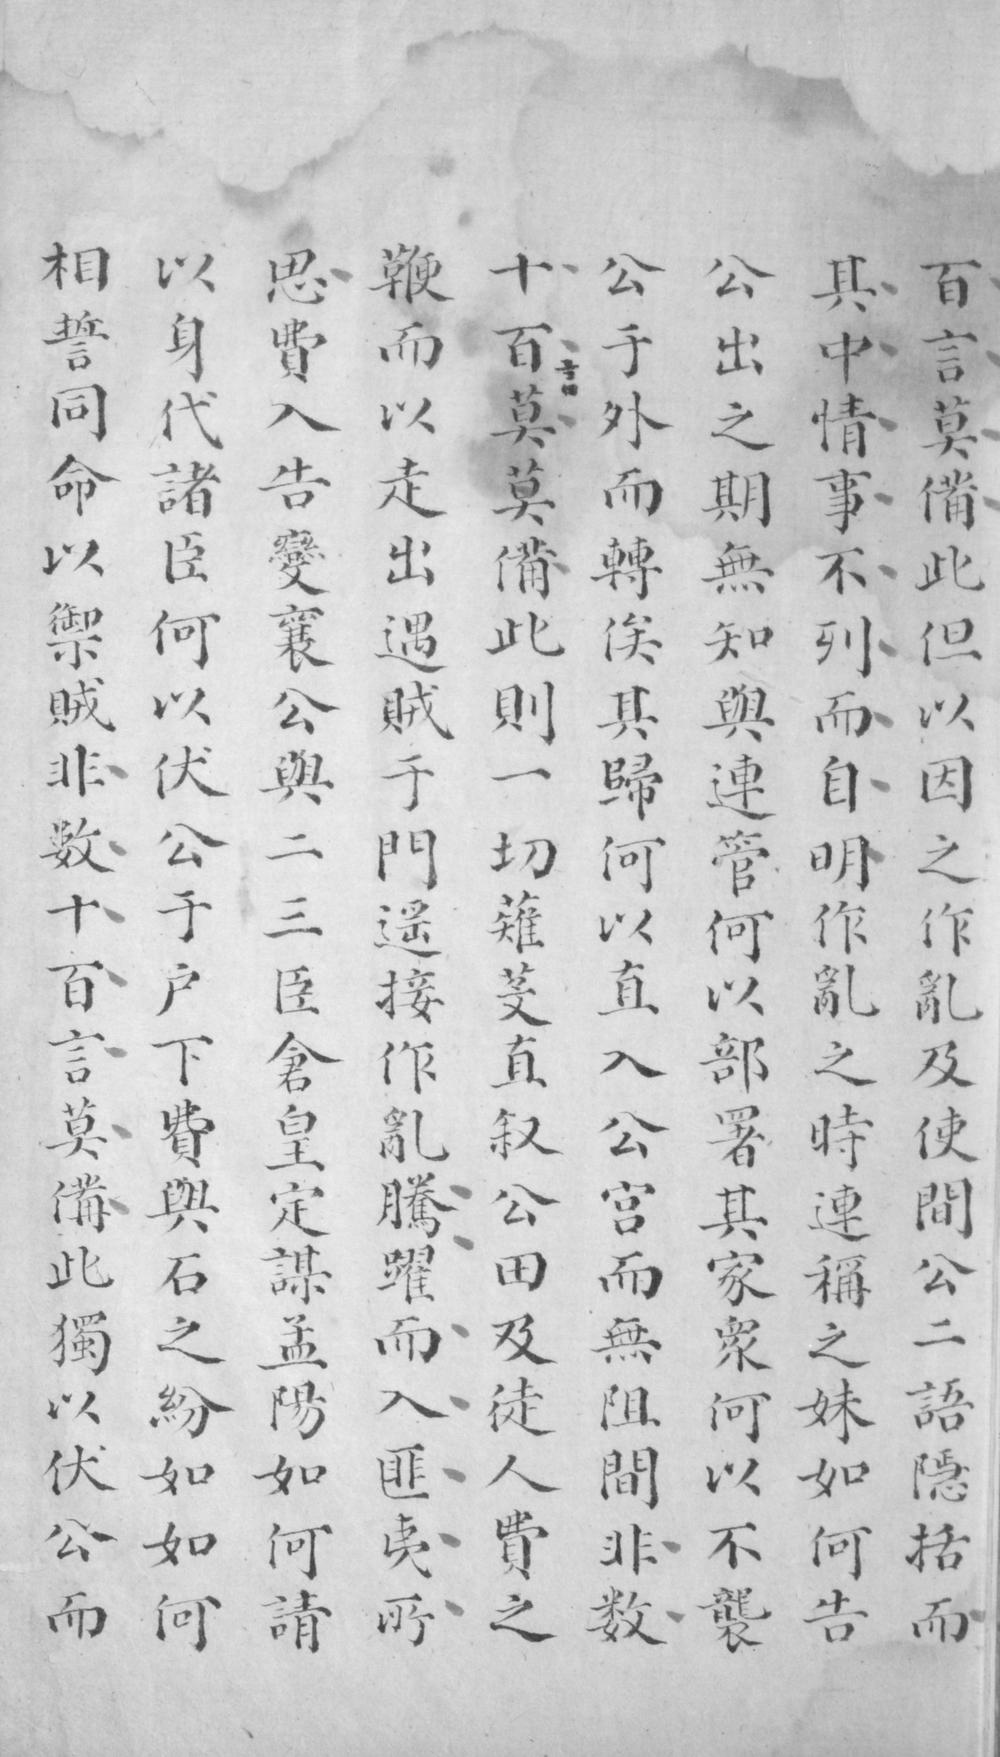 百言莫備此但以因之作亂及使間公二語隱括而
其中情事不列而自明作亂之時連稱之妹如何告
公出之期無知與連管何以部署其家衆何以不襲
公于外而轉俟其歸何以直入公宮而無阻間非数
十百言莫莫備此則一切薙芟直叙公田及徒人費之
鞭而以走出遇賊于門遥接作亂騰躍而入匪夷所
思費入告變襄公與二三臣倉皇定謀孟陽如何請
以身代諸臣何以伏公于户下費與石之紛如如何
相誓同命以禦賊非数十百言莫備此獨以伏公而